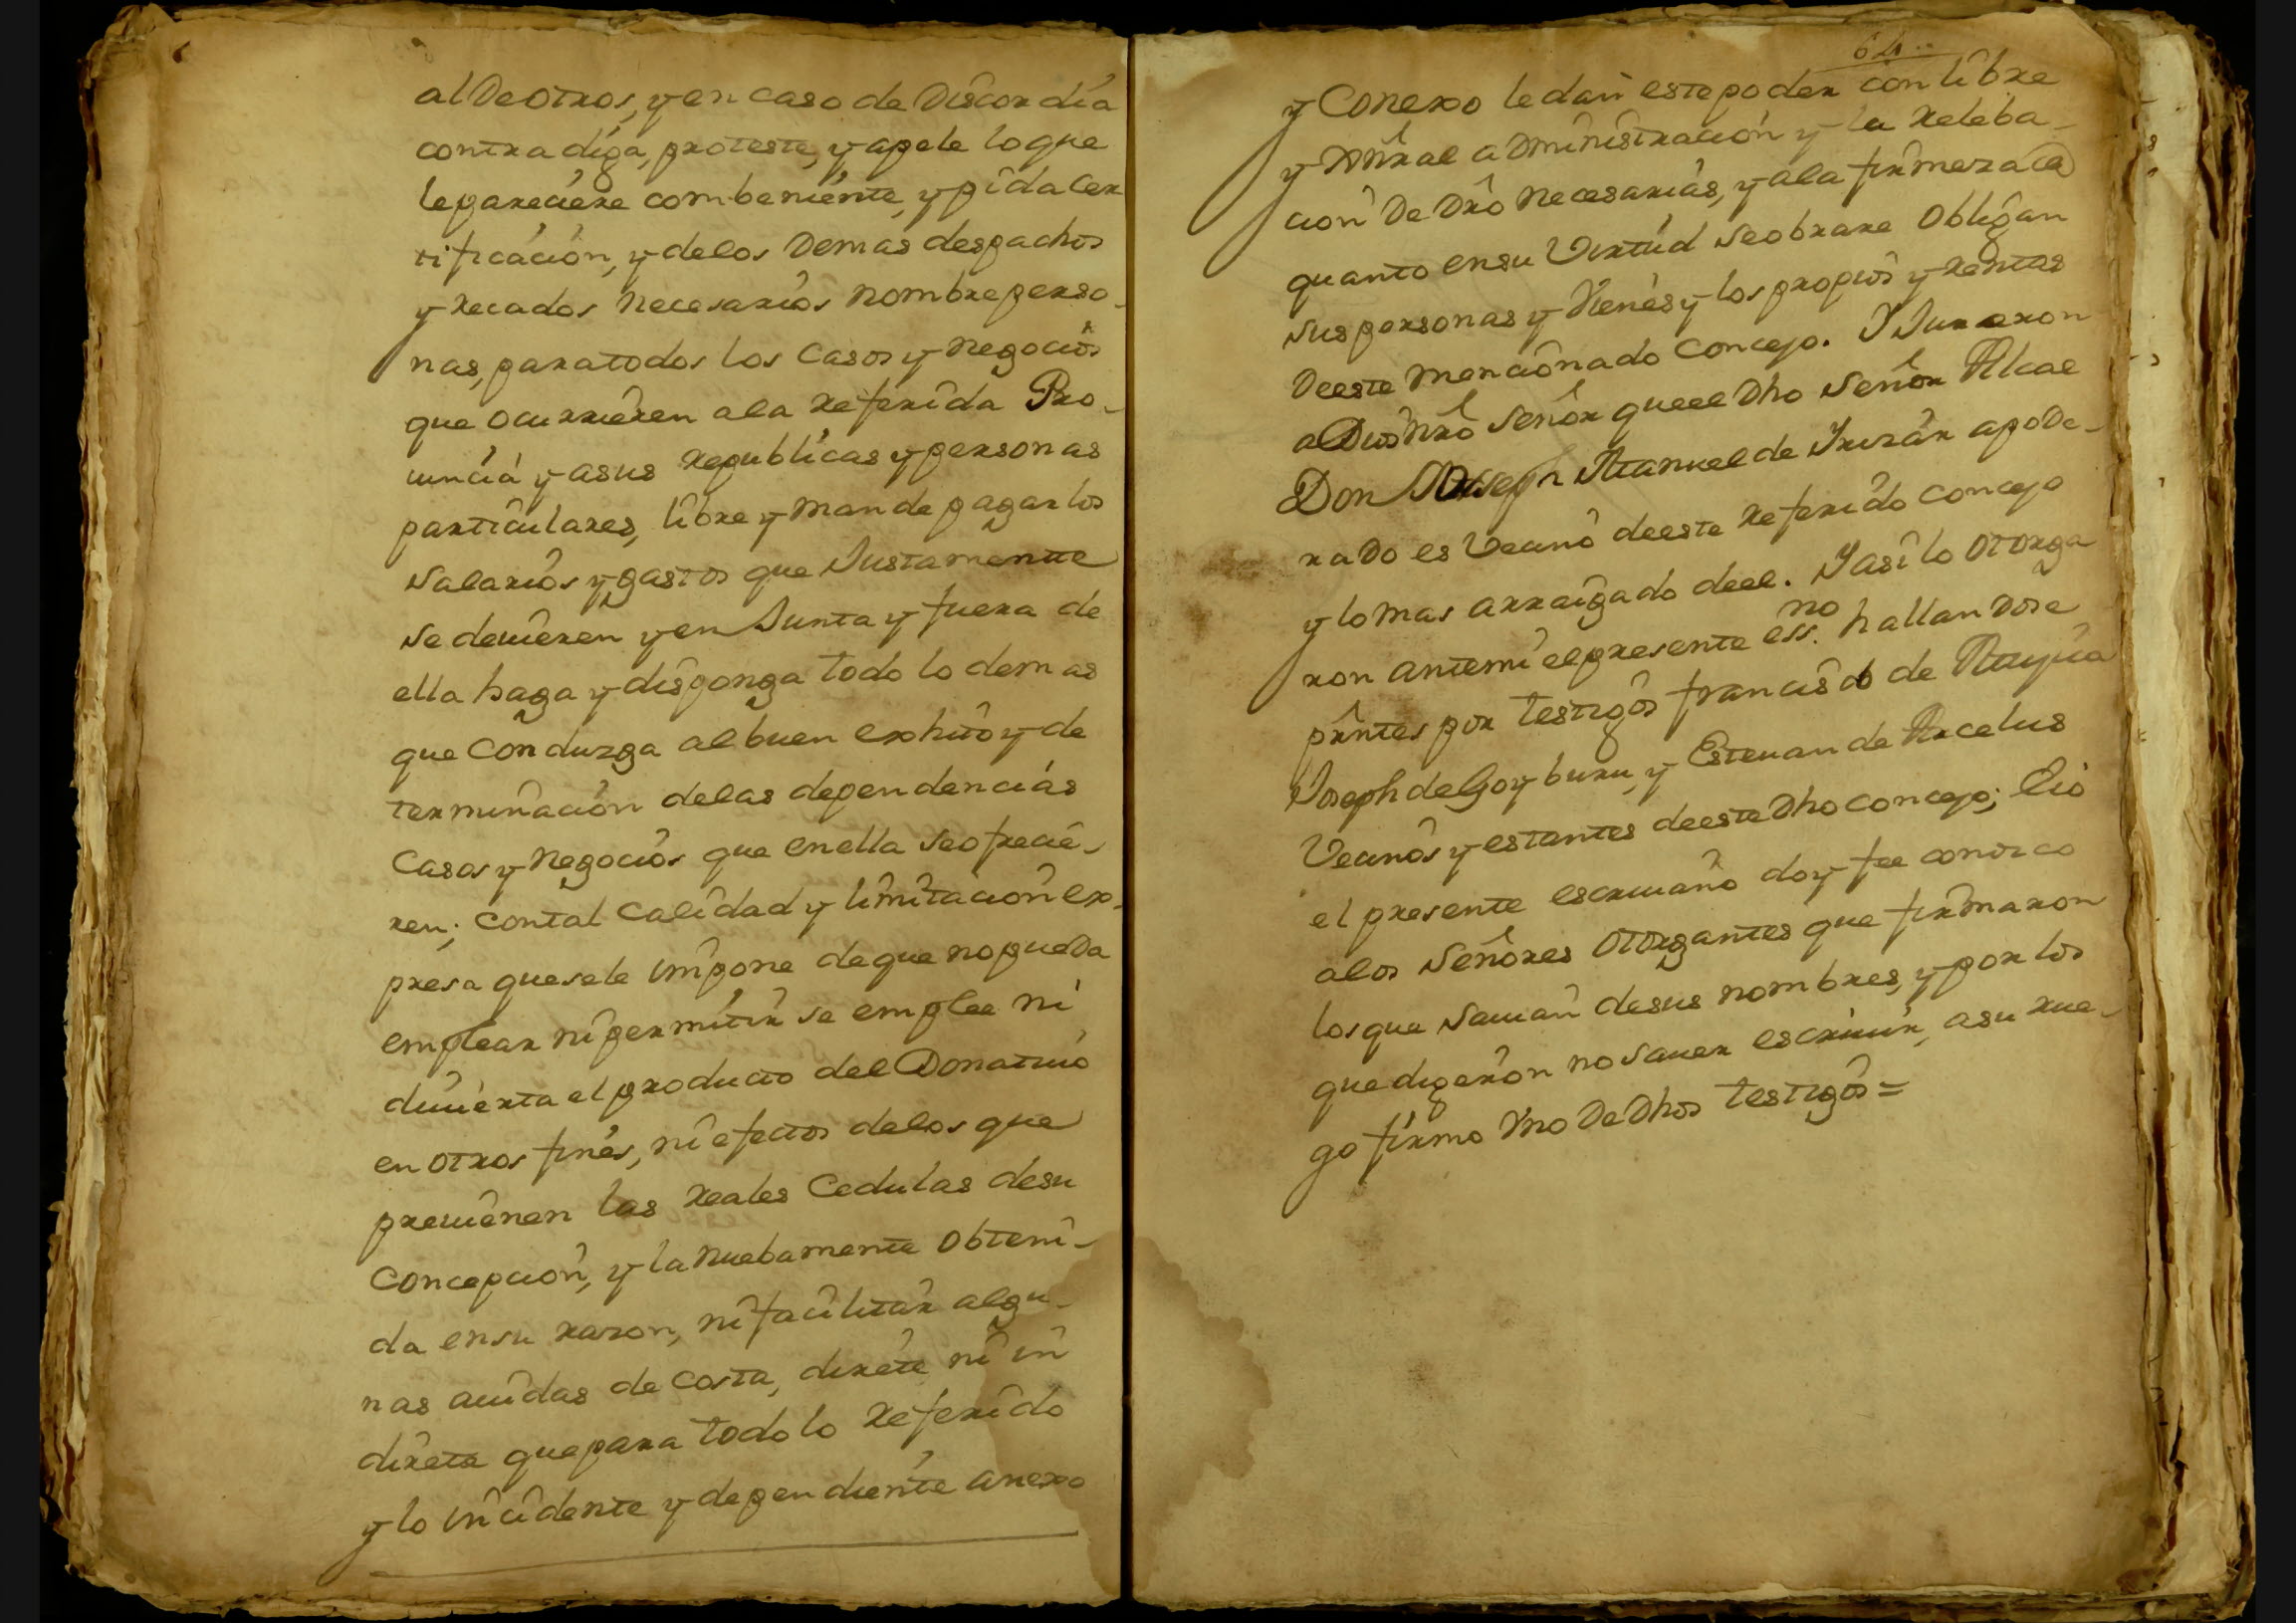 al De otros, y en caso de Discordia
contradiga, proteste, y apele lo que
le pareciere combeniente, y pida cer
tificación, y delos Demas despachos
y recados necesarios nombre perso-
nas, para todos los Casos y negocios
que ocurrieren ala referida Pro-
uincia y asus republicas y personas
particulares, libre y mande pagar los
Salarios y gastos que Justamente
se deuieren y en Junta y fuera de
ella haga y disponga todo lo demas
que Conduzga al buen exhito y de
terminación delas dependencias
Casos y negocios que en ella se ofrecie-
ren; con tal calidad y limitacion ex-
presa que se le impone de que no pueda
emplear ni permitir se emplee ni
diuierta el producto del Donatiuo
en otros fines, ni efectos delos que
preuienen las reales Cedulas desu
Concepcion, y la nuebamente obteni-
da ensu razon, ni facilitar algu-
nas auidas de costa, direte ni in
direte que para todo lo referido
y lo incidente y dependiente anexo
64..
y Conexo le dan este poder con libre
y gñral administración y la releba-
cion De Dro necesarias, y ala firmeza de
quanto ensu Virtud se obrare Obligan
sus personas y Vienes y los propios y rentas
De este mencionado Concejo. Y Juraron
a Dios nro Señor que el Dho Señor Alcae
Don Joseph Manuel de Irizar apode-
rado es Vecino de este referido concejo
y lo mas arraigado de el. Y asi lo otorga
ron ante mi el presente ess.no hallandose
pñntes por testigos francisco de
Joseph de Goyburu, y Esteuan de Arcelus
Vecinos y estantes de este Dho concejo; E io
el presente escriuano doy fee conozco
alos Señores Otorgantes que firmaron
los que sauian desus nombres, y por los
que digeron no sauer escriuir, asu rue-
go firmo Vno De Dhos testigos =